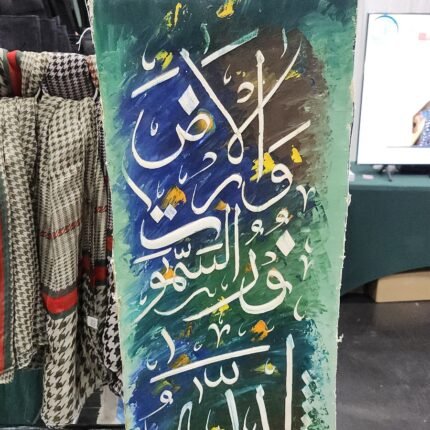 اللّٰهُ
نُورُ السَّمٰوَاتِ
وَالْأَرْضِ